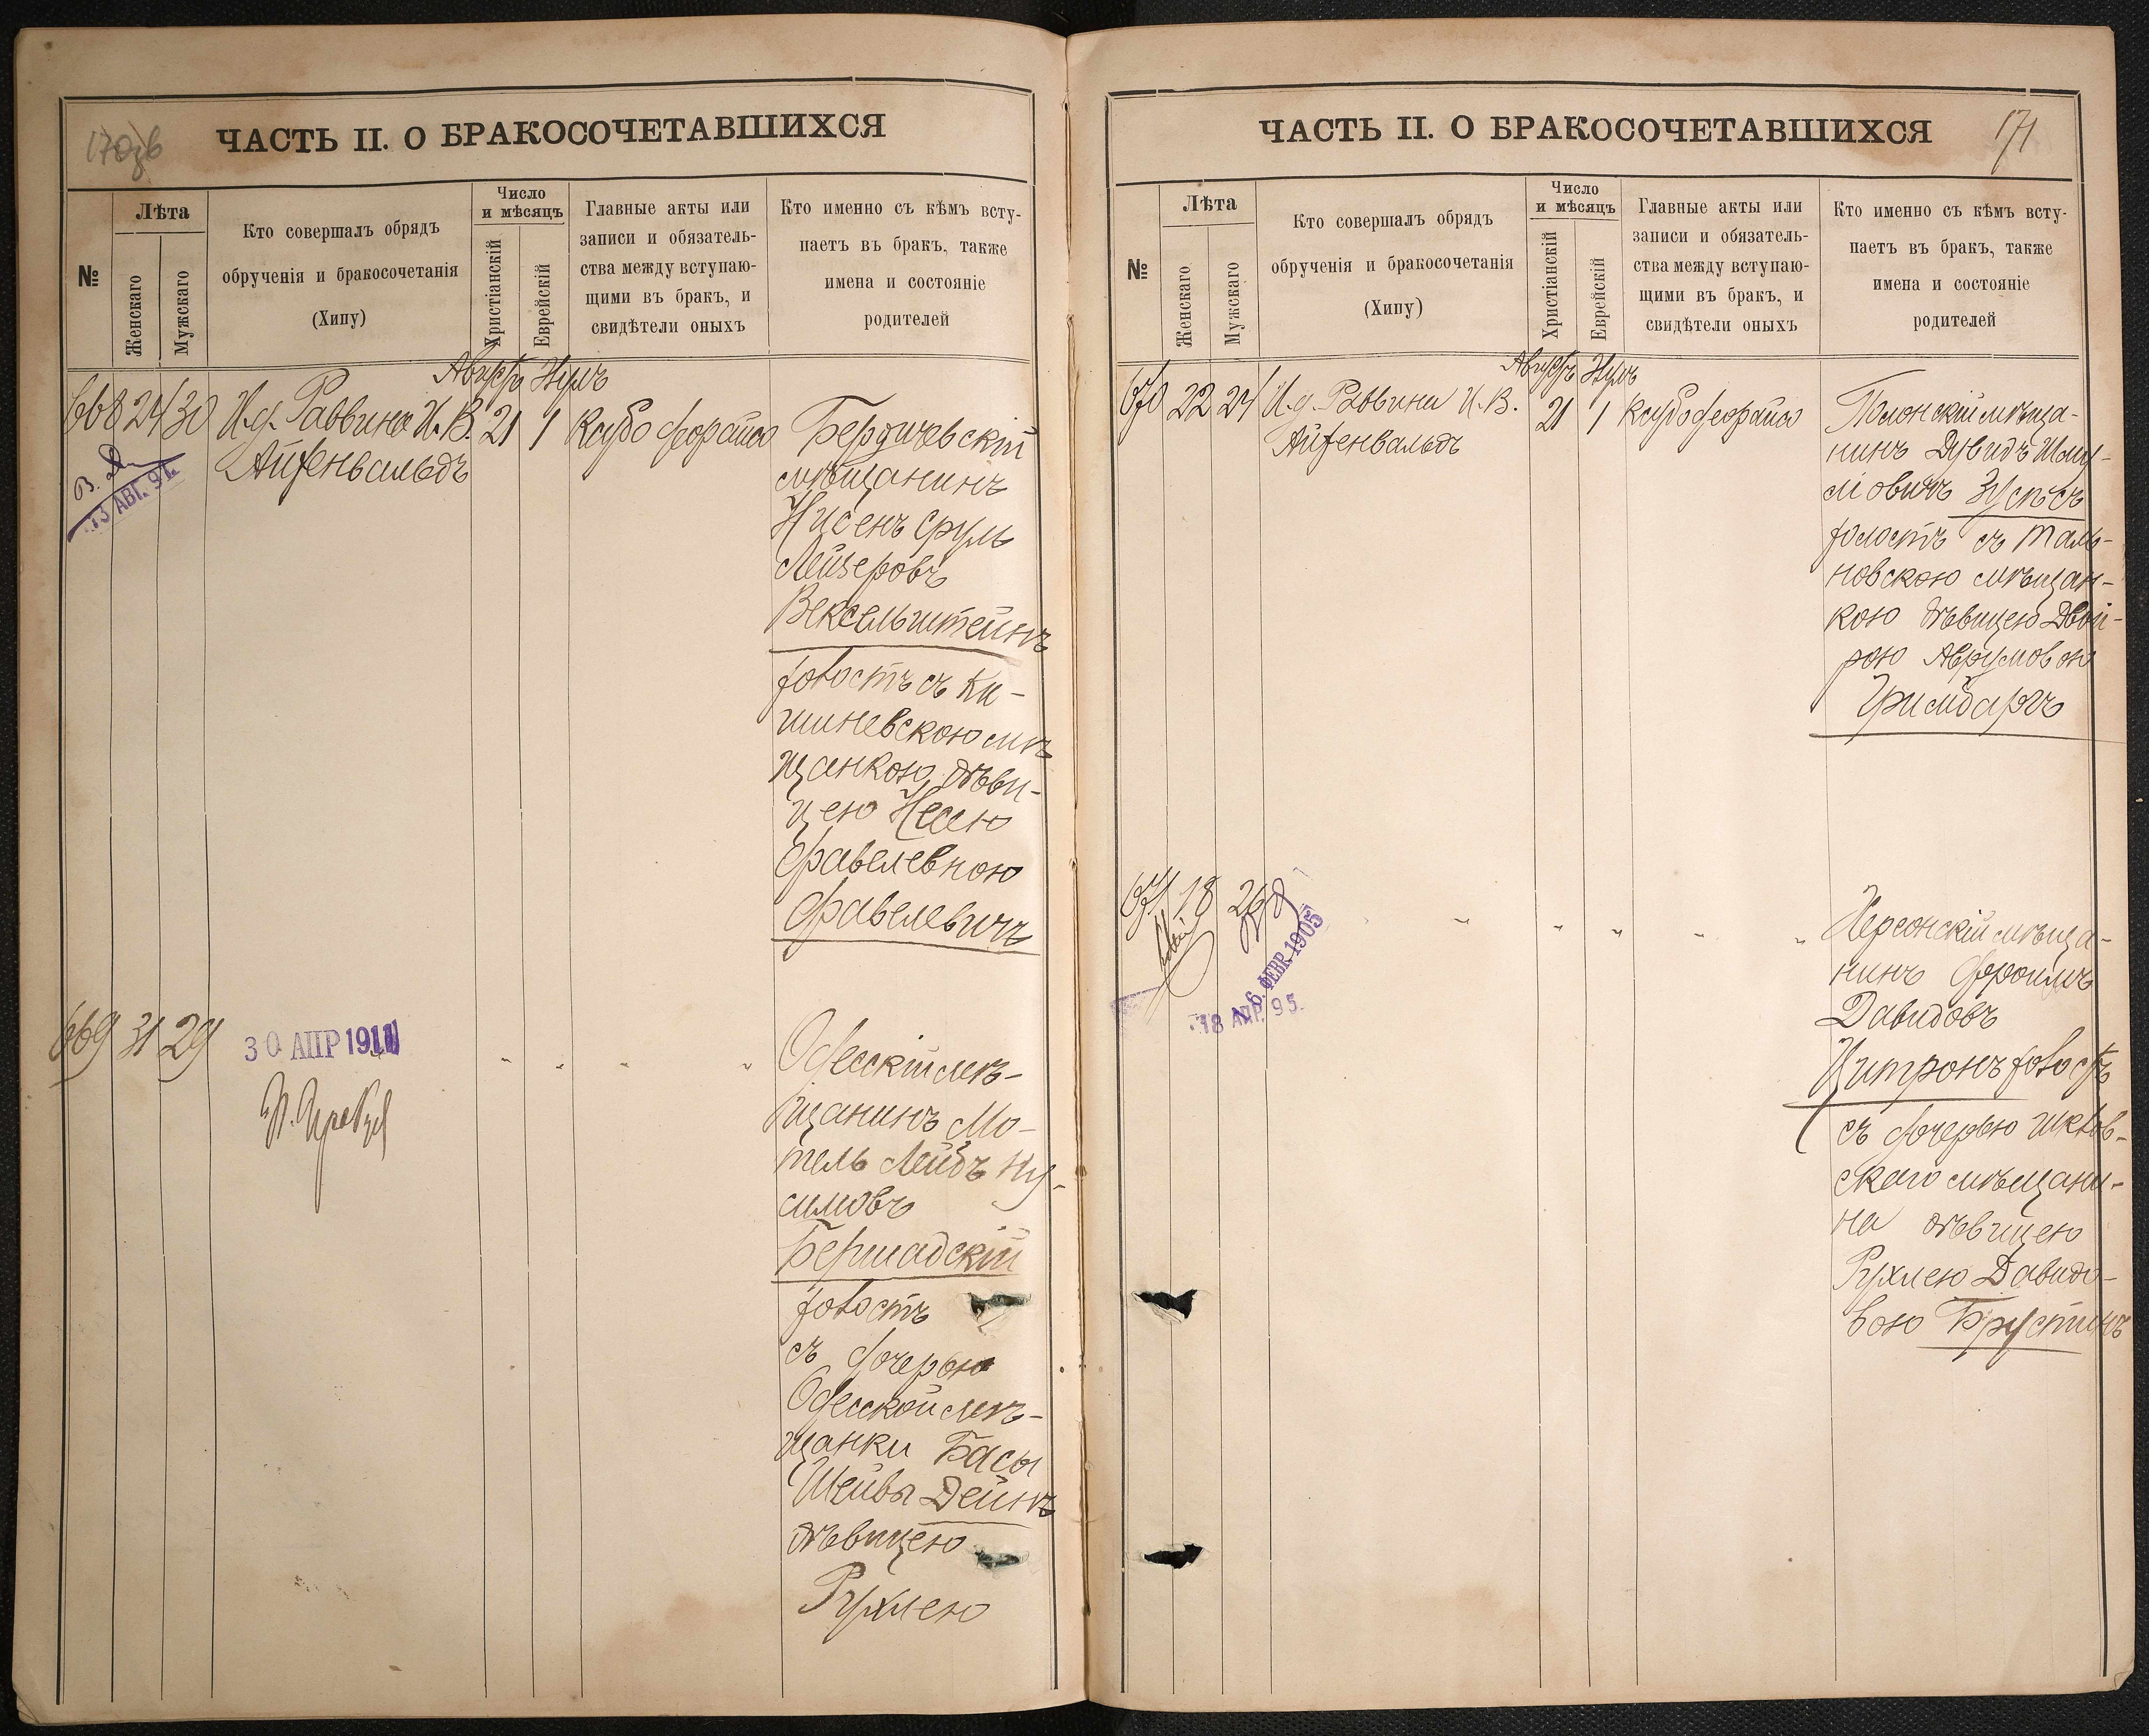 170зв
ЧАСТЬ II. О БРАКОСОЧЕТАВШИХСЯ
№
Лѣта
Женскаго
Мужскаго
Кто совершалъ обрядъ
обрученія и бракосочетанія
(Хипу)
Число
и мѣсяцъ
Христіанскій
Еврейскій
Главные акты или
записи и обязатель-
ства между вступаю-
щими въ бракъ, и
свидѣтели оныхъ
Кто именно съ кѣмъ всту-
паетъ въ бракъ, также
имена и состояніе
родителей
Августъ
668 24 30 И.д. Раввина И.В. 21 1
Айзенвальдъ
13 АВГ. 91.
Бердичевскій
мѣщанинъ
Нисенъ Сруль
Лейзеровъ
Вексельштейнъ
холостъ съ Ки-
шиневскою мѣ
щанкою, дѣви-
цею Несею
Фавелевною
Фавелевичъ
669 31 29
30 АПР 1911
Одесскій мѣ-
щанинъ Мо-
тель Лейбъ Ну-
симовъ
Бершадскій
холостъ
съ дочерью
Одесской мѣ-
щанки Басы
Шейвы Дейнъ
дѣвицею
Рухлею
171
ЧАСТЬ II. О БРАКОСОЧЕТАВШИХСЯ
№
Лѣта
Женскаго
Мужскаго
Кто совершалъ обрядъ
обрученія и бракосочетанія
(Хипу)
Число
и мѣсяцъ
Христіанскій
Еврейскій
Главные акты или
записи и обязатель-
ства между вступаю-
щими въ бракъ, и
свидѣтели оныхъ
Кто именно съ кѣмъ всту-
паетъ въ бракъ, также
имена и состояніе
родителей
Августъ
670 22 24 И.д. Раввина И.В. 21 1
Айзенвальдъ
Полонскій мѣща-
нинъ Дувидъ Шму-
ліовичъ Зусъсъ
холостъ съ Таль-
новскою мѣщан-
кою дѣвицею Двой-
рою Аврумовою
Гримбаргъ
671 18 26
6. ФЕВР. 1905
18 АПР. 95.
Херсонскій мѣща-
нинъ Фроимъ
Давидовъ
Цитронъ холостъ
съ дочерью Шклов-
скаго мѣщани-
на дѣвицею
Рухлею Давидо-
вою Брустинъ